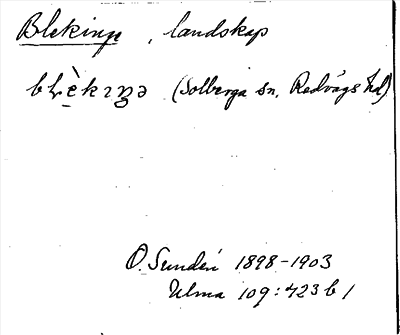 Blekinge, landskap
blèkɪŋə (Solberga sn, Redvägs hd)
O. Sundén 1898-1903
Ulma 109:423 b 1